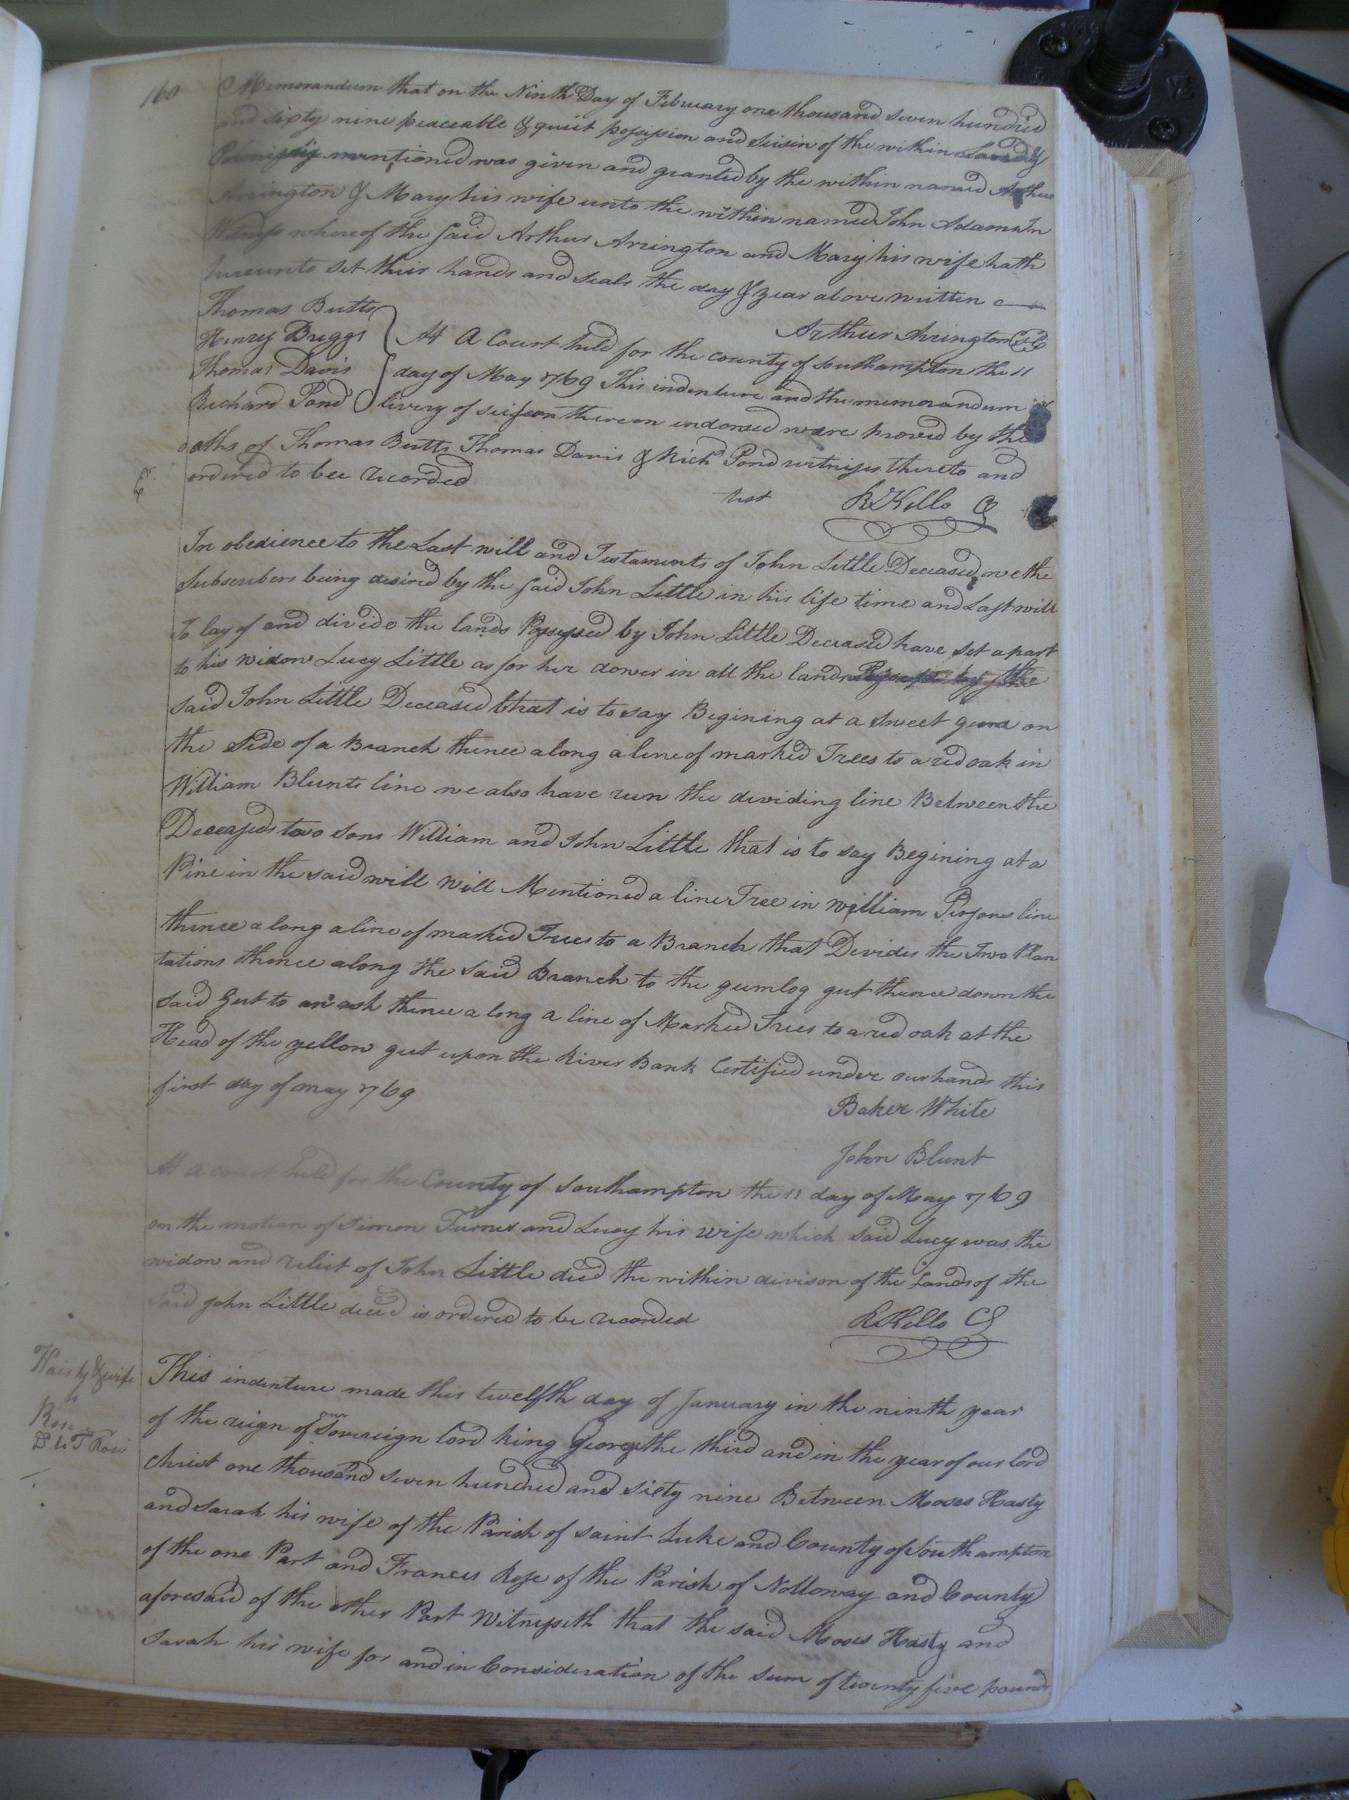 160
Memorandum that on the Ninth Day of February one thousand seven hundred
and sixty nine peaceable & quiet possession and Seisin of the within Land &
Premisses mentioned was given and granted by the within named Arthur
Arington & Mary his wife unto the within named John Adams In
Witness whereof the said Arthur Arington and Mary his wife hath
hereunto set their hands and seals the day & year above written
Thomas Butts
Arthur Arington
Henry Briggs
At A Court held for the county of Southampton the 11
Thomas Davis
day of May 1769 This indenture and the memorandum of
Richard Pond
livery of seison thereon endorsed were proved by the
oaths of Thomas Butts Thomas Davis & Richd Pond witnesses thereto and
ordered to bee recorded
test R Kello C
In obedience to the Last will and Testaments of John Little Deceased we the
Subscribers being desired by the said John Little in his life time and Last will
To lay of and divide the lands Possessed by John Little Deceasd have set apart
to his widow Lucy Little as for her dower in all the lands by the
said John Little Deceased that is to say Begining at a sweet gum on
the side of a Branch thence along a line of marked Trees to a red oak in
William Blunts line we also have run the deviding line Between the
Deceaseds two sons William and John Little that is to say Begining at a
Pine in the said will will Mentioned a line Tree in william line
thence along a line of marked Trees to a Branch that Divides the Two Plan
tations thence along the said Branch to the gumlog gut thence down the
said Gut to an ash thence a long a line of Marked Trees to a red oak at the
Head of the yellow gut upon the River Bank Certified under our hands this
first day of may 1769
Baker White
John Blunt
At a court held for the County of Southampton the 11 day of May 1769
on the motion of Simon Turner and Lucy his wife which said Lucy was the
widow and relict of John Little decd the within divison of the Lands of the
Said John Little deced is ordered to be recorded
R Kello C
& wife
to
Rose
This indenture made this twelfth day of January in the ninth year
of the reign of our Sovereign lord king George the third and in the year of our lord
christ one thousand seven hundred and sixty nine Between Moses Hasty
and Sarah his wife of the Parish of saint Luke and County of Southampton
of the one Part and Frances Rose of the Parish of Nottoway and County
aforesaid of the other Part Witnesseth that the said Moses Hasty and
Sarah his wife for and in Consideration of the sum of twenty five pounds